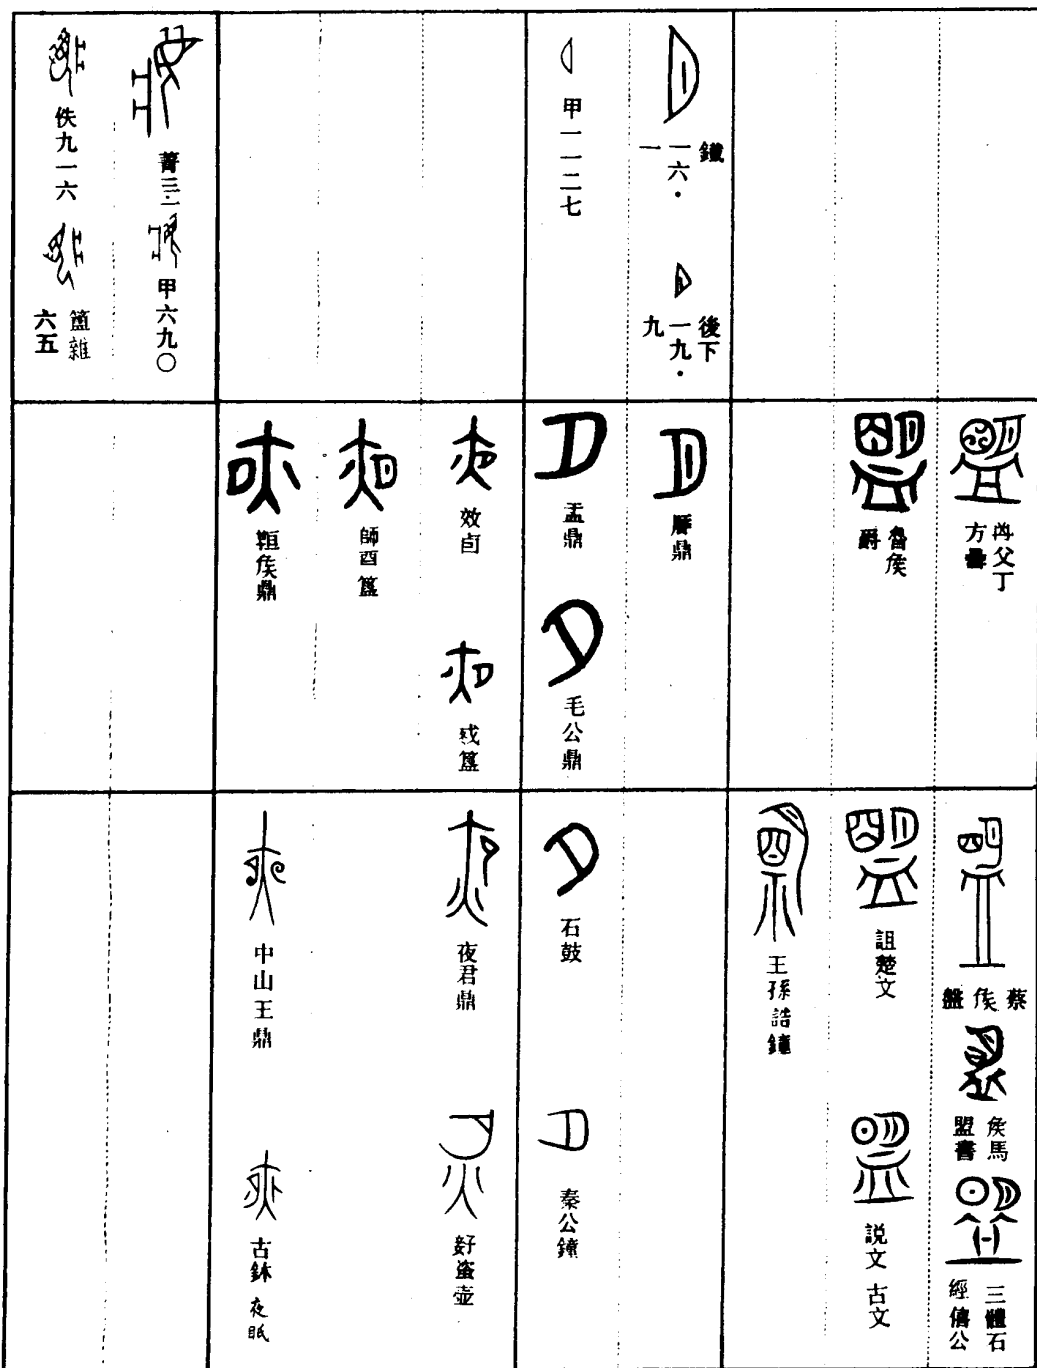 鐵
一六·
一
後下
一九·
九
甲一一二七
菁三·一
甲六九〇
佚九一六
簠雜
六五
父丁
方罍
魯矦
爵
曆鼎
盂鼎
毛公鼎
效卣
簋
師酉簋
矦鼎
蔡
矦
盤
矦馬
盟書
三體石
經僖公
詛楚文
説文古文
王孫誥鐘
石鼓
秦公鐘
夜君鼎
好盗壺
中山王鼎
古鉢 夜眂